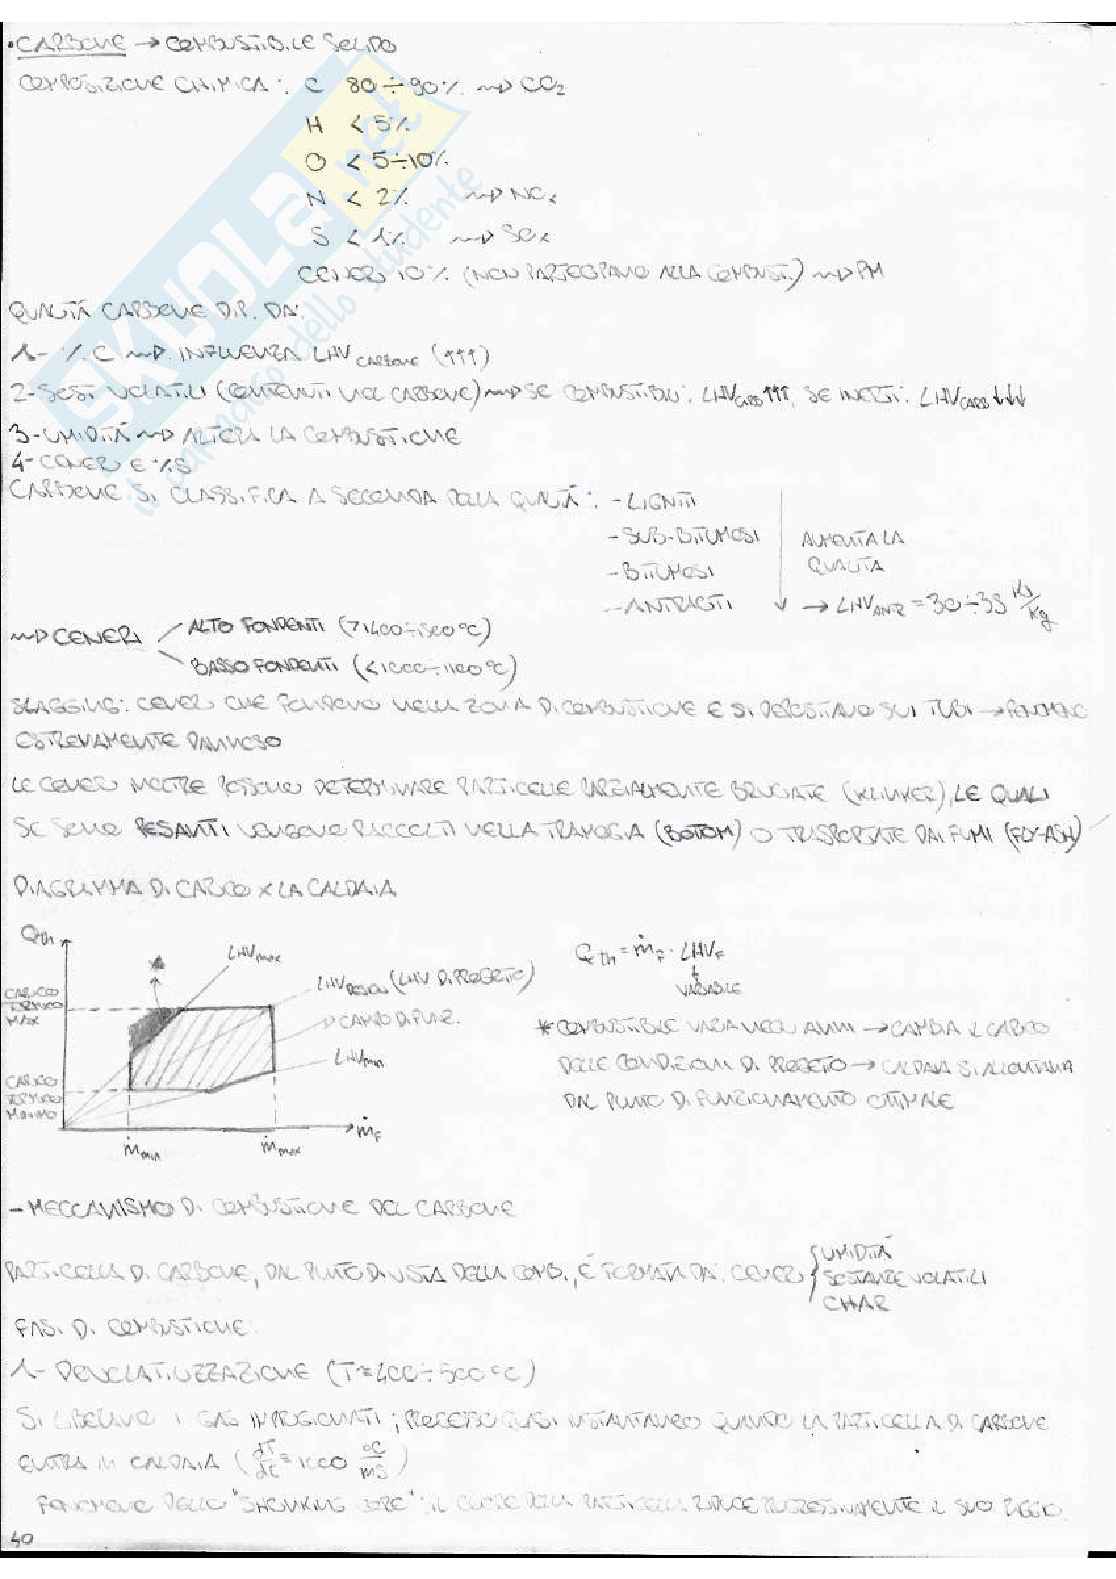 • CARBONE → COMBUSTIBILE SOLIDO
COMPOSIZIONE CHIMICA: C 80÷90% ⇝ CO₂
H < 5%
O < 5÷10%
N < 2% ⇝ NOx
S < 1% ⇝ SOx
CENERI 10% (NON PARTECIPANO ALLA COMBUST.) ⇝ PM
QUALITÀ CARBONE DIP. DA:
1- % C ⇝ INFLUENZA LHV CARBONE (↑↑↑)
2- SOST. VOLATILI (CONTENUTI NEL CARBONE) ⇝ SE COMBUSTIBILI: LHV CARB ↑↑↑, SE INERTI: LHV CARB ↓↓↓
3- UMIDITÀ ⇝ ALTERA LA COMBUSTIONE
4- CENERI E %S
CARBONE SI CLASSIFICA A SECONDA DELLA QUALITÀ: - LIGNITI
- SUB-BITUMOSI
- BITUMOSI
- ANTRACITI
AUMENTA LA
QUALITÀ
→ LHV ANTR = 30÷35 KJ/Kg
⇝ CENERI
ALTO FONDENTI (>1400÷1500°C)
BASSO FONDENTI (<1000÷1100°C)
SLAGGING: CENERI CHE FONDONO NELLA ZONA DI COMBUSTIONE E SI DEPOSITANO SUI TUBI → FENOMENO
ESTREMAMENTE DANNOSO
LE CENERI INOLTRE POSSONO DETERMINARE PARTICELLE PARZIALMENTE BRUCIATE (KLINKER), LE QUALI
SE SONO PESANTI VENGONO RACCOLTI NELLA TRAMOGGIA (BOTOM) O TRASPORTATE DAI FUMI (FLY-ASH)
DIAGRAMMA DI CARICO x LA CALDAIA
Qth
CARICO
TERMICO
MAX
CARICO
TERMICO
MINIMO
*
LHV max
LHV DESIGN (LHV DI PROGETTO)
→ CAMPO DI FUNZ.
LHV min
ṁ min
ṁ max
ṁF
Qth = ṁF · LHVF
↓
VARIABILE
* COMBUSTIBILE VARIA NEGLI ANNI → CAMBIA IL CARICO
DELLE CONDIZIONI DI PROGETTO → CALDAIA SI ALLONTANA
DAL PUNTO DI FUNZIONAMENTO OTTIMALE
- MECCANISMO DI COMBUSTIONE DEL CARBONE
PARTICELLA DI CARBONE, DAL PUNTO DI VISTA DELLA COMB., È FORMATA DA: CENERI
UMIDITÀ
SOSTANZE VOLATILI
CHAR
FASI DI COMBUSTIONE:
1- DEVOLATILIZZAZIONE (T≈400÷500°C)
SI LIBERANO I GAS IMPRIGIONATI; PROCESSO QUASI INSTANTANEO QUANDO LA PARTICELLA DI CARBONE
ENTRA IN CALDAIA (dT/dt = 1000 °C/ms)
FENOMENO DELLO "SHRINKING CORE": IL CUORE DELLA PARTICELLA RIDUCE PROGRESSIVAMENTE IL SUO RAGGIO.
40
SKUOLA.net
il paradiso dello studente